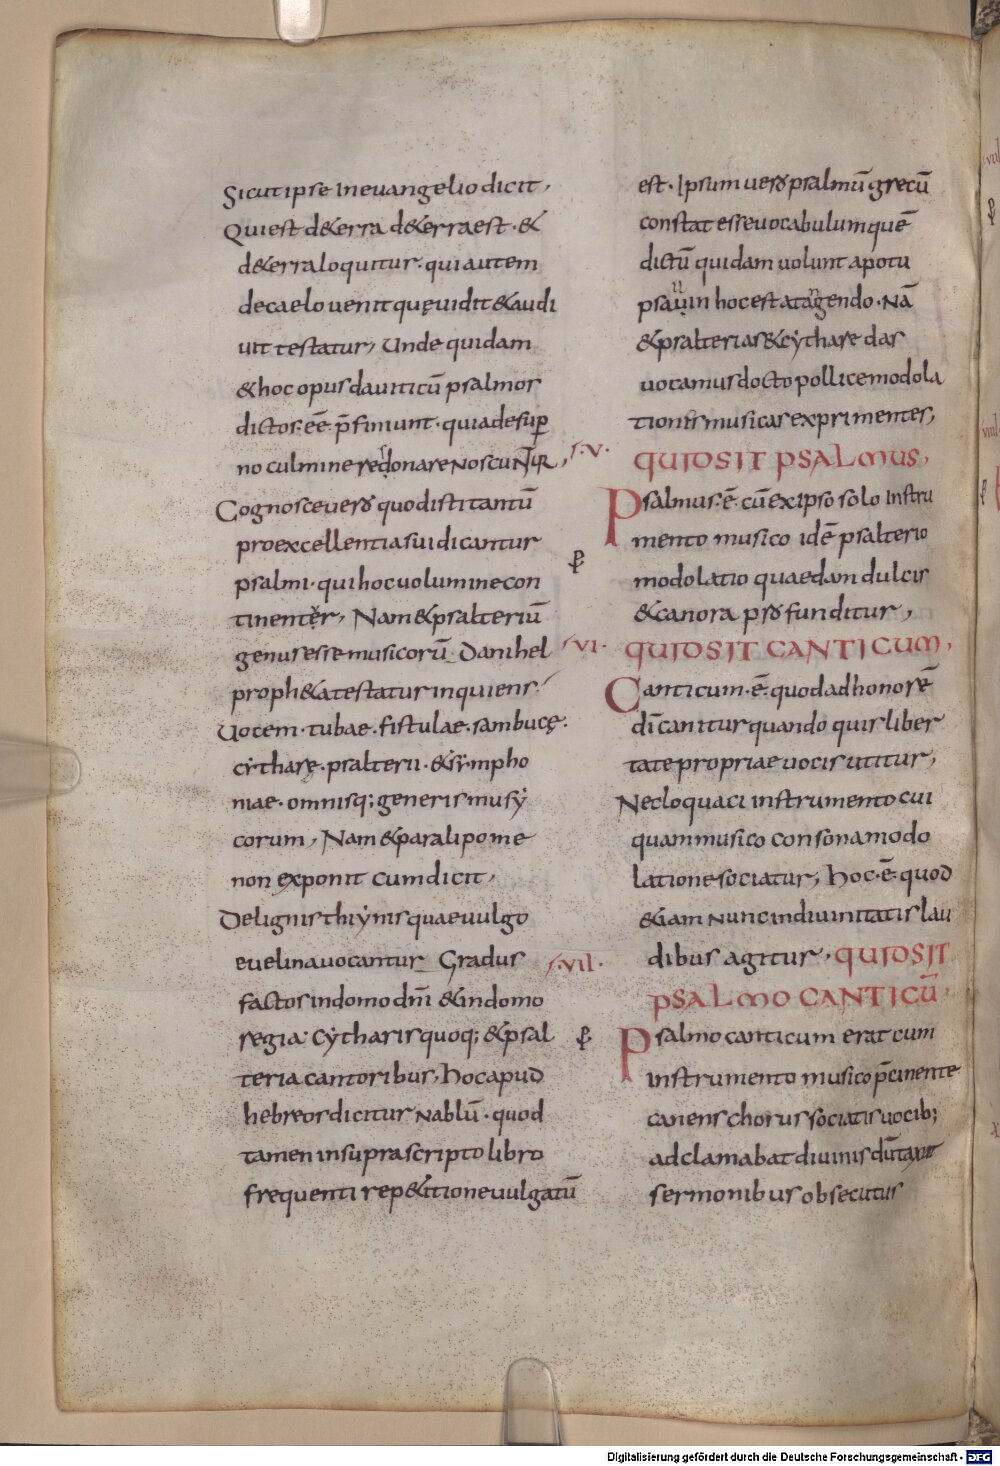 Sicut ipse In euangelio dicit,
Qui est de terra de terra est · &
d&erra loquitur · qui autem
de caelo uenit quę uidit & audi
uit testatur, Unde quidam
& hoc opus dauiticū psalmos
dictos · eē p̄finiunt · quia desup̱
no culmine redonare noscuNtR,
Cognosce uero quod isti tantū
pro excellentia sui dicantur
psalmi · qui hoc uolumine con
tinentur, Nam & psalteriū
genus esse musicorū Danihel
proph&a testatur inquiens
Uocem · tubae · fistulae · sambucę ·
cẏtharę · psalterii · & sẏmpho
niae · omnisq; generis musẏ
corum, Nam & paralipome
non exponit cum dicit,
De lignis thẏinis quae uulgo
euelina uocantur Gradus
factos in domo dn̄i & in domo
regia · Cẏtharis quoq; & psal
teria cantoribus, hoc apud
hebreos dicitur Nablū · quod
tamen in supra scripto libro
frequenti rep&itione uulgatū
est · Ipsum uero psalmū grecū
constat esse uocabulum quē
dictū quidam uolunt apotu
psauin hoc est a tangendo · Nā
& psalterias & cẏtharedas
uocamus docto pollice modola
tionis musicas exprimentes,
·V·
QUID SIT PSALMUS,
Psalmus · ē · cū ex ipso solo Instru
mento musico idē psalterio
modolatio quaedam dulcis
& canora pro funditur,
·VI·
QUID SIT CANTICUM,
Canticum · ē · quod ad honorē
dī canitur quando quis liber
tate propriae uocis utitur,
Nec loquaci instrumento cui
quam musico consona modo
latione sociatur, hoc · ē · quod
&iam nunc in diuinitatis lau
dibus agitur,
·VII·
QUID SIT
PSALMO CANTICŪ,
Psalmo canticum erat cum
instrumento musico p̄cinente
canens chorus sociatis uocib;
adclamabat diuinis dūtaxat
sermonibus obsecutus
Digitalisierung gefördert durch die Deutsche Forschungsgemeinschaft - DFG